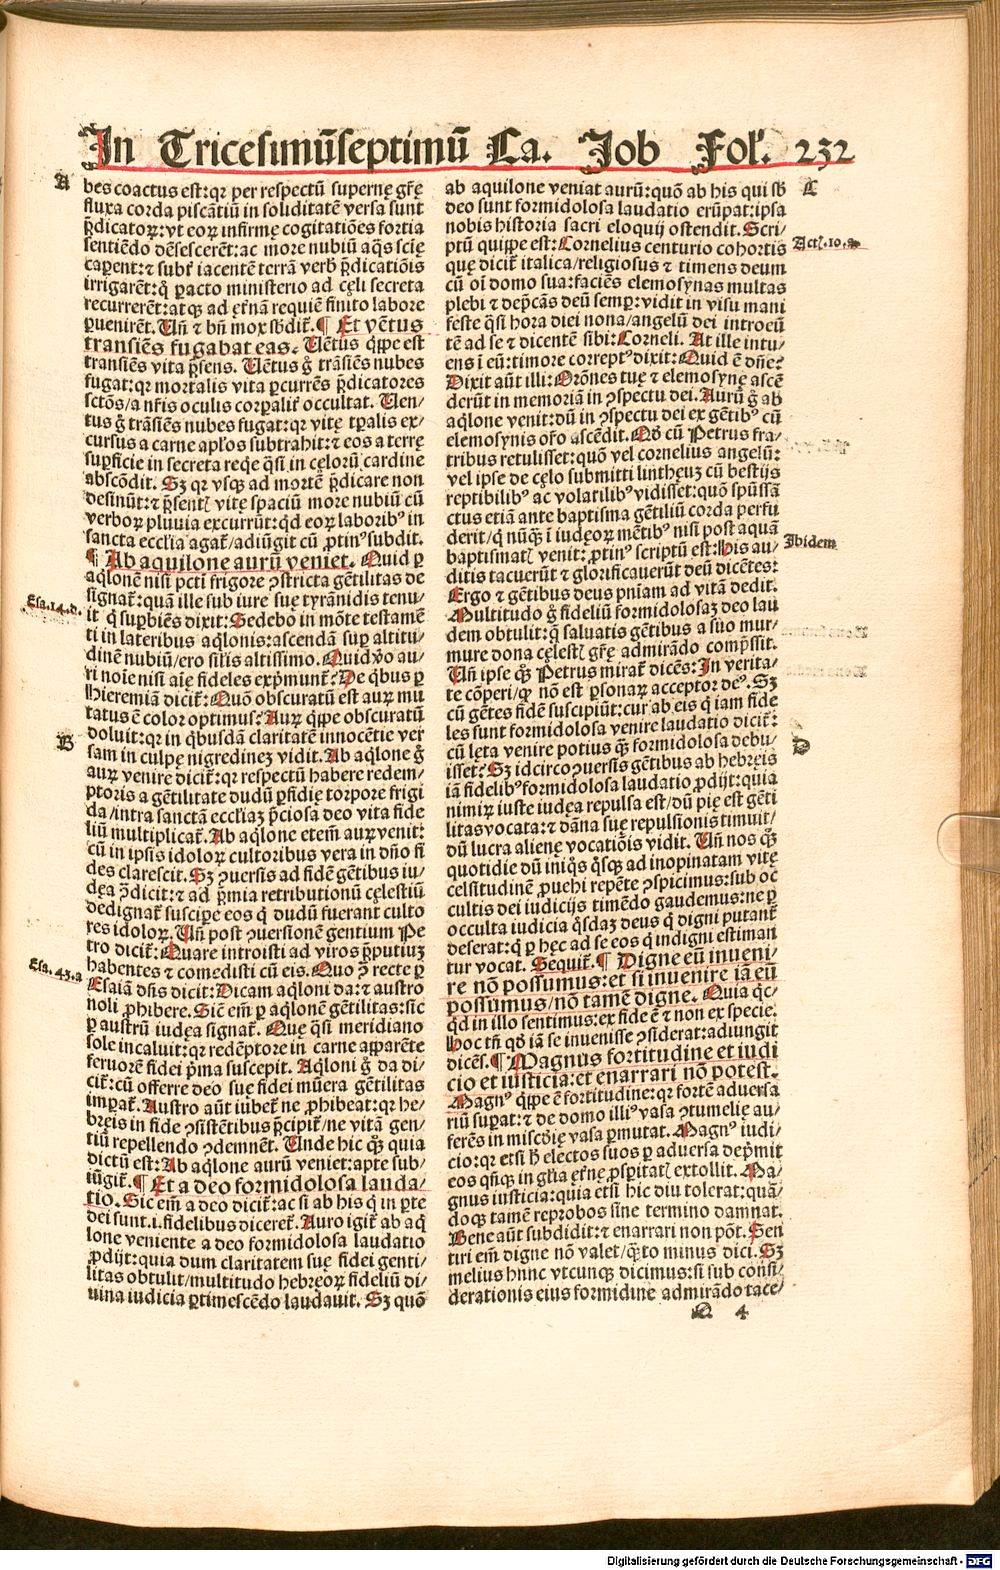 In Tricesimūseptimū Ca. Job Fol'. 232
A
bes coactus est: qꝛ per respectū supernę gr̄ę
fluxa corda piscātiū in soliditatē versa sunt
p̄dicatoꝝ: vt eoꝝ infirmę cogitatiōes fortia
sentiēdo dēsescerēt: ac more nubiū aq̄s scię
caperent: ⁊ subt' iacentē terrā verb' p̄dicatiōis
irrigarēt: q̄ ꝑacto ministerio ad cęli secreta
recurrerēt: atqꝫ ad ęt̄nā requiē finito labore
ꝑuenirēt. Uñ ⁊ bñ mox sb̄dit̄. ¶ Et vētus
transiēs fugabat eas. Uētus q̄ꝑe est
transiēs vita p̄sens. Uētus ḡ trāsiēs nubes
fugat: qꝛ mortalis vita ꝑcurrēs p̄dicatores
sctōs/ a nr̄is oculis corꝑalit̄ occultat. Uen/
tus ḡ trāsiēs nubes fugat: qꝛ vitę tꝑalis ex/
cursus a carne apl̄os subtrahit: ⁊ eos a terrę
suꝑficie in secreta reqē q̄si in cęlorū cardine
abscōdit. Sꝫ qꝛ vsqꝫ ad mortē p̄dicare non
desinūt: ⁊ p̄sentꝭ vitę spaciū more nubiū cū
verboꝝ pluuia excurrūt: qd̄ eoꝝ laboribꝰ in
sancta ecclīa agat̄/ adiūgit cū ꝓtinꝰ subdit.
¶ Ab aquilone aurū veniet. Quid ꝑ
aq̄lonē nisi pcti frigore ꝯstricta gētilitas de
signat̄: quā ille sub iure suę tyrānidis tenu/
Esa. 14. d.
it q̄ suꝑbiēs dixit: Sedebo in mōte testamē
ti in lateribus aq̄lonis: ascendā suꝑ altitu/
dinē nubiū/ ero sil̄is altissimo. Quid v̄o au/
ri noīe nisi aīę fideles exp̄munt̄? De q̄bus ꝑ
Hieremiā dicit̄: Quō obscuratū est auꝝ mu
tatus ē color optimus? Auꝝ q̄ꝑe obscuratū
doluit: qꝛ in q̄busdā claritatē innocētie ver
B
sam in culpę nigredinez vidit. Ab aq̄lone ḡ
auꝝ venire dicit̄: qꝛ respectū habere redem/
ptoris a gētilitate dudū ꝑfidię torpore frigi
da/ intra sanctā eccliaꝫ p̄ciosa deo vita fide
liū multiplicat̄. Ab aq̄lone eteīm auꝝ venit:
cū in ipsis idoloꝝ cultoribus vera in dn̄o fi
des clarescit. Sꝫ ꝯuersis ad fidē gētibus iu/
dęa ꝯdicit: ⁊ ad p̄mia retributionū cęlestiū
dedignat̄ suscipe eos q̄ dudū fuerant culto
res idoloꝝ. Uñ post ꝯuersionē gentium Pe
tro dicit̄: Quare introisti ad viros p̄putiuꝫ
Esa. 43. a
habentes ⁊ comedisti cū eis. Quo ꝯ̄ recte ꝑ
Esaiā dn̄s dicit: Dicam aq̄loni da: ⁊ austro
noli ꝓhibere. Sic em̄ ꝑ aq̄lonē gētilitas: sic
ꝑ austrū iudęa signat̄. Quę q̄si meridiano
sole incaluit: qꝛ redēptore in carne apparēte
feruorē fidei p̄ma suscepit. Aq̄loni ḡ da di/
cit̄: cū offerre deo suę fidei mūera gētilitas
imꝑat̄. Austro aūt iubet̄ ne ꝓhibeat: qꝛ he/
bręis in fide ꝯsistētibus p̄cipit̄/ ne vitā gen/
tiū repellendo ꝯdemnēt. Unde hic qꝫ quia
dictū est: Ab aq̄lone aurū veniet: apte sub/
iūgit̄. ¶ Et a deo formidolosa lauda/
tio. Sic em̄ a deo dicit̄: ac si ab his q̄ in ꝑte
dei sunt .i. fidelibus diceret̄. Auro igit̄ ab aq̄
lone veniente a deo formidolosa laudatio
ꝓdijt: quia dum claritatem suę fidei genti/
litas obtulit/ multitudo hebręoꝝ fideliū di/
uina iudicia ꝑtimescēdo laudauit. Sꝫ quō
ab aquilone veniat aurū: quō ab his qui sb̄
C
deo sunt formidolosa laudatio erūpat: ipsa
nobis historia sacri eloquij ostendit. Scri/
ptū quippe est: Cornelius centurio cohortis
Actꝭ. 10. a
quę dicit̄ italica/ religiosus ⁊ timens deum
cū oī domo sua: faciēs elemosynas multas
plebi ⁊ dep̄cās deū semꝑ: vidit in visu mani
feste q̄si hora diei nona/ angelū dei introeū
tē ad se ⁊ dicentē sibi: Corneli. At ille intu/
ens ī eū: timore correptꝰ dixit: Quid ē dn̄e?
Dixit aūt illi: Orōnes tuę ⁊ elemosynę ascē
derūt in memoriā in ꝯspectu dei. Aurū ḡ ab
aq̄lone venit: dū in ꝯspectu dei ex gētibꝰ cū
elemosynis or̄o ascēdit. Qd̄ cū Petrus fra/
tribus retulisset: quō vel cornelius angelū:
vel ipse de cęlo submitti lintheuꝫ cū bestijs
reptibilibꝰ ac volatilibꝰ vidisset: quō spūssā
ctus etiā ante baptisma gētiliū corda perfu
derit/ q̄ nūq̄ꝫ ī iudęoꝝ mētibꝰ nisi post aquā
baptismatꝭ venit: ꝓtinꝰ scriptū est: His au/
Ibidem
ditis tacuerūt ⁊ glorificauerūt deū dicētes:
Ergo ⁊ gētibus deus pn̄iam ad vitā dedit.
Multitudo ḡ fideliū formidolosaꝫ deo lau
dem obtulit: q̄ saluatis gētibus a suo mur/
mure dona cęlestꝭ gr̄ę admirādo comp̄ssit.
Uñ ipse qꝫ Petrus mirat̄ dicēs: In verita/
te cōperi/ qꝫ nō est ꝑsonaꝝ acceptor deꝰ. Sꝫ
cū gētes fidē suscipiūt: cur ab eis q̄ iam fide
les sunt formidolosa venire laudatio dicit̄:
cū lęta venire potius q̄ꝫ formidolosa debu/
D
isset? Sꝫ idcirco ꝯuersis gētibus ab hebręis
iā fidelibꝰ formidolosa laudatio ꝓdijt: quia
nimiꝝ iuste iudęa repulsa est/ dū pię est gēti
litas vocata: ⁊ dāna suę repulsionis timuit/
dū lucra alienę vocatiōis vidit. Uñ nos qꝫ
quotidie dū iniq̄s q̄sqꝫ ad inopinatam vitę
celsitudinē ꝓuehi repēte ꝯspicimus: sub oc
cultis dei iudicijs timēdo gaudemus: ne ꝑ
occulta iudicia q̄sdaꝫ deus q̄ digni putant̄
deserat: q̄ ꝑ hęc ad se eos q̄ indigni estiman
tur vocat. Sequit̄. ¶ Digne eū inueni/
re nō possumus: et si inuenire iā eū
possumus/ nō tamē digne. Quia qc̄/
qd̄ in illo sentimus: ex fide ē ⁊ non ex specie.
Hoc tn̄ qd̄ iā se inuenisse ꝯsiderat: adiungit
dicēs. ¶ Magnus fortitudine et iudi
cio et iusticia: et enarrari nō potest.
Magnꝰ q̄ꝑe ē fortitudine: qꝛ fortē aduersa
riū suꝑat: ⁊ de domo illiꝰ vasa ꝯtumelię au/
ferēs in miscd̄ię vasa ꝑmutat. Magnꝰ iudi/
cio: qꝛ etsi h̄ electos suos ꝑ aduersa dep̄mit
eos qn̄qꝫ in gl̄ia et̄nę ꝓsꝑitatꝭ extollit. Ma/
gnus iusticia: quia etsi hic diu tolerat: quā/
doqꝫ tamē reprobos sine termino damnat.
Bene aūt subdidit: ⁊ enarrari non pōt. Sen
tiri em̄ digne nō valet/ q̄ꝫto minus dici. Sꝫ
melius hunc vtcunqꝫ dicimus: si sub consi/
derationis eius formidine admirādo tace/
Q 4
Digitalisierung gefördert durch die Deutsche Forschungsgemeinschaft - DFG